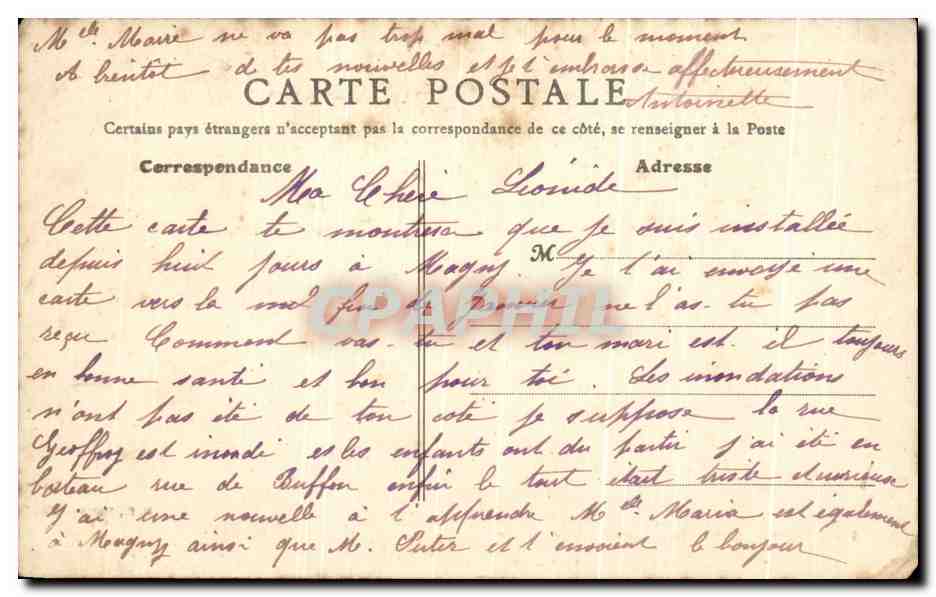 Mlle Marie ne va pas trop mal pour le moment
A bientot de tes nouvelles et je t'embrasse affectueusement
CARTE POSTALE
Antoinette
Certains pays étrangers n'acceptent pas la correspondance de ce côté, se renseigner à la Poste
Correspondance
Adresse
Ma Chère Léonide
Cette carte te montrera que je suis installée
depuis huit jours à Magny. Je t'ai envoyé une
M
carte vers la fin de Janvier ne l'as-tu pas
CPAPHIL
reçu Comment vas-tu et ton mari est-il toujours
en bonne santé et bon pour toi. Les inondations
n'ont pas été de ton coté je suppose la rue
Geoffroy est inondé et les enfants ont du partir j'ai été en
bateau rue de Buffon enfin le tout était triste et
J'ai une nouvelle à t'apprendre Mlle Maria est également
à Magny ainsi que M. et t'envoient le bonjour